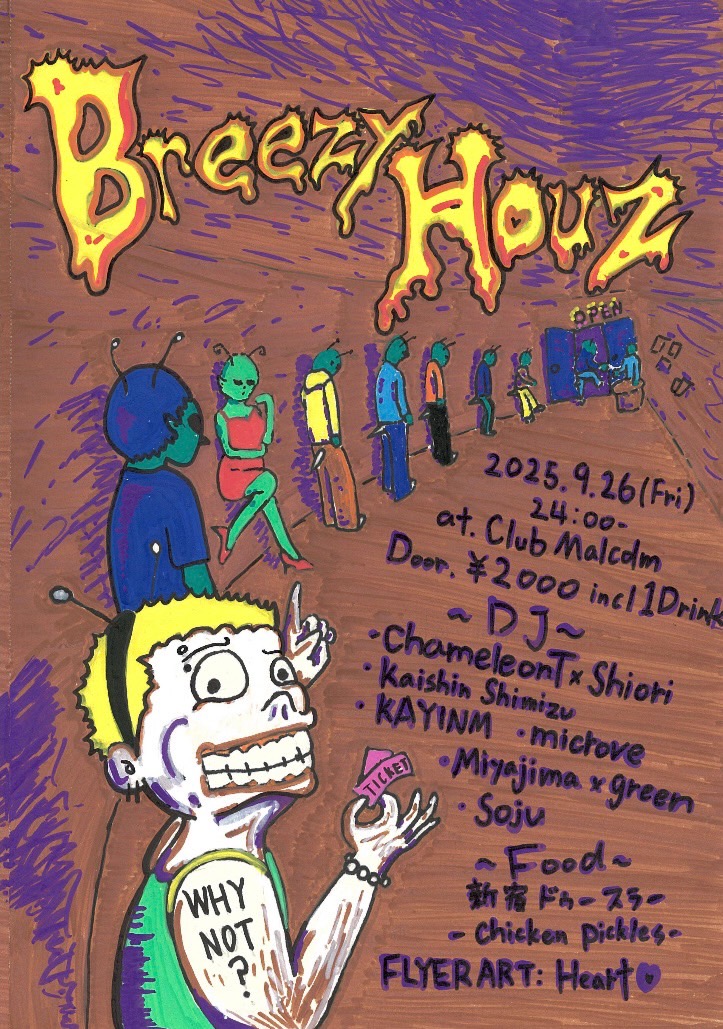 Breezy
Houz
OPEN
2025.9.26(Fri)
24:00-
at. Club Malcolm
Door. ¥2000 incl 1Drink
~DJ~
・ChameleonT×Shiori
・Kaishin Shimizu
・KAYINM ・mictove
・Miyajima×green
・Soju
TICKET
~Food~
新宿ドゥースラー
-Chicken pickles-
WHY
NOT
?
FLYER ART: Heart